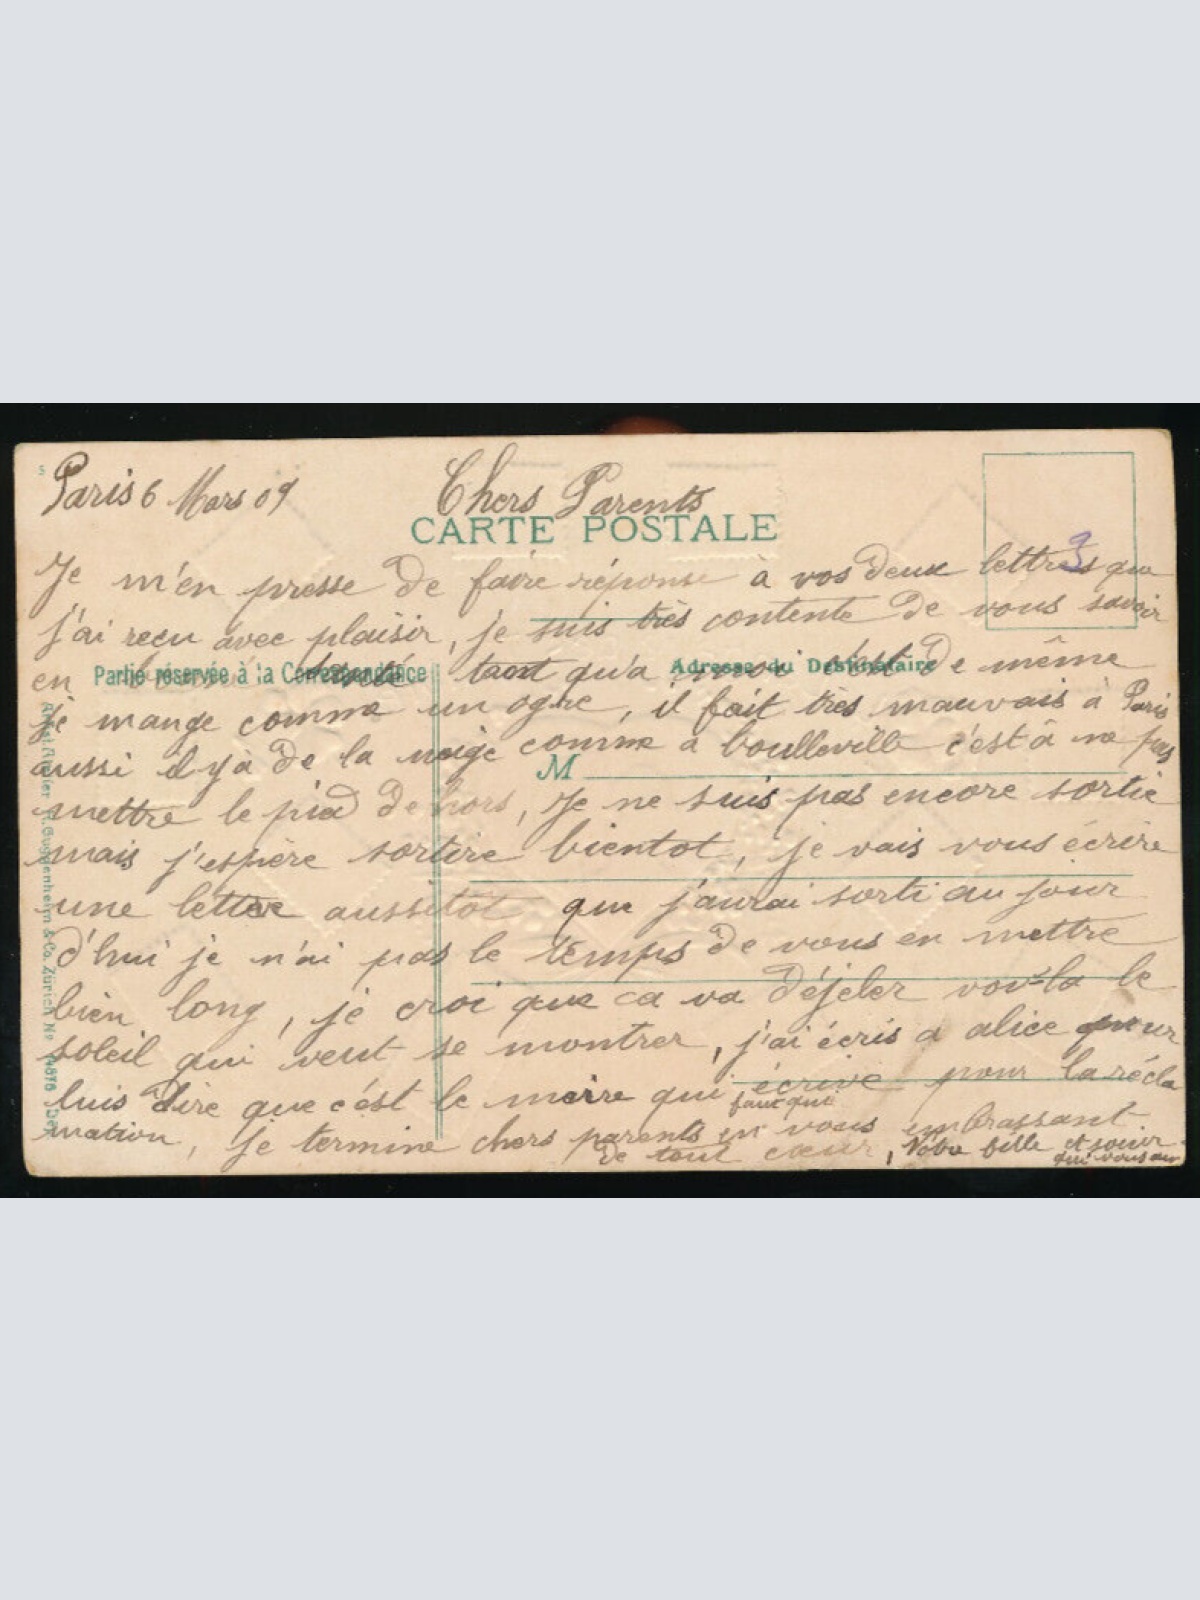 Paris 6 Mars 09
Chers Parents
CARTE POSTALE
3
Je m'en presse de faire réponse à vos deux lettres que
j'ai reçu avec plaisir, je suis très contente de vous savoir
en bonne santé tant qu'a moi c'est de même
Partie réservée à la Correspondance
Adresse du Destinataire
je mange comme un ogre, il fait très mauvais à Paris
aussi il y à de la neige comme a boulleville c'est à ne pas
M
mettre le pied dehors, Je ne suis pas encore sortie
mais j'espère sortire bientot, je vais vous écrire
une lettre aussitot que j'aurai sorti au jour
d'hui je n'ai pas le temps de vous en mettre
bien long, je croi que ca va déjeler voila le
soleil qui veut se montrer, j'ai écris a alice pour
luis dire que c'ést le maire qui faut qui écrive pour la récla
mation, je termine chers parents en vous embrassant
de tout cœur, Votre fille et soeur
qui vous aime
S
& Co. Zürich No